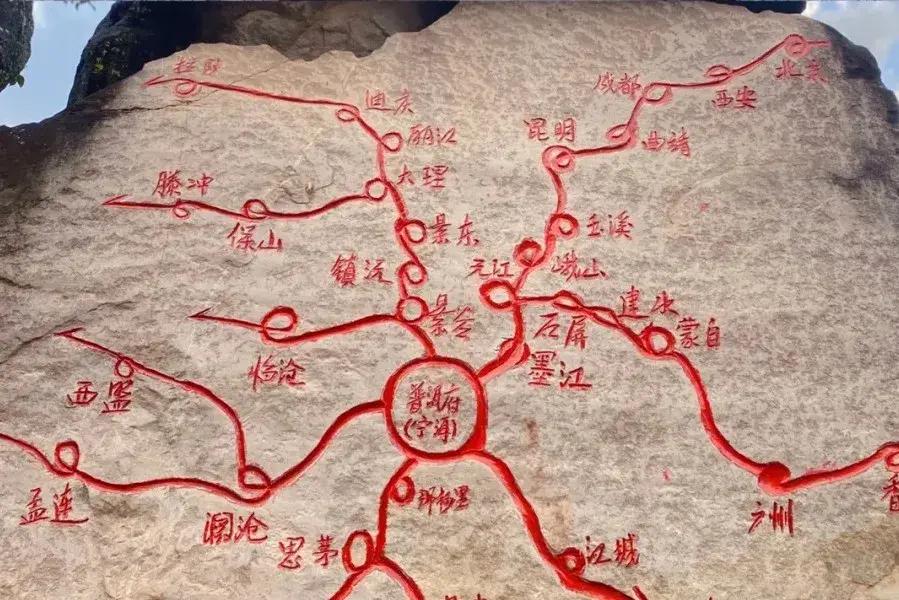 北京
拉萨
成都
西安
迪庆
丽江
昆明
曲靖
大理
腾冲
保山
景东
玉溪
镇沅
元江
峨山
景谷
建水
石屏
蒙自
墨江
临沧
西盟
普洱府
(宁洱)
孟连
澜沧
广州
香
那柯里
思茅
江城